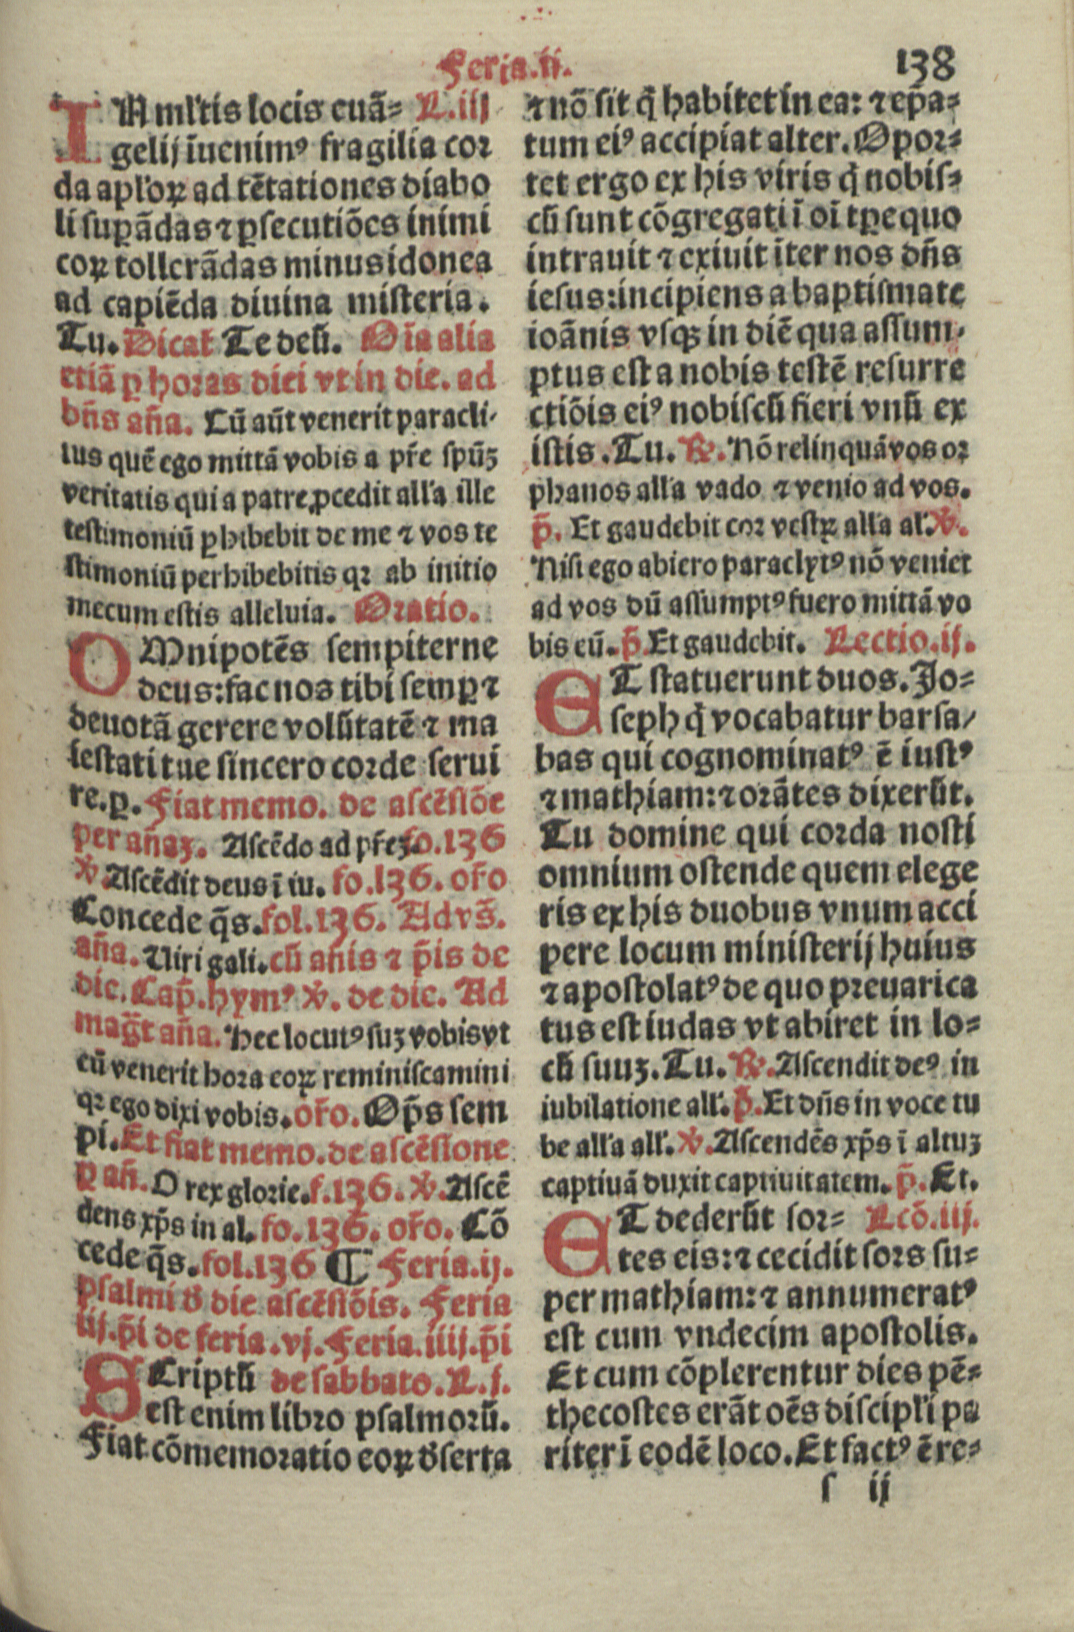 Feria.ii. 138
IN ml'tis locis euā= L.iij
gelij īuenimꝰ fragilia cor
da apl'oꝝ ad tētationes diabo
li suꝑādas ⁊ ꝑsecutiōes inimi
coꝝ tollerādas minus idonea
ad capiēda diuina misteria.
Tu. Dicat̄ Te deū. Oīa alia
etiā ꝑ horas diei vt in die. ad
bn̄s an̄a. Cū aūt venerit paracli-
tus quē ego mittā vobis a pr̄e spūꝫ
veritatis qui a patre ꝓcedit all'a ille
testimoniū ꝑhibebit de me ⁊ vos te
stimoniū perhibebitis qꝛ ab initio
mecum estis alleluia. Oratio.
OMnipotēs sempiterne
deus: fac nos tibi semꝑ ⁊
deuotā gerere volūtatē ⁊ ma
iestati tue sincero corde serui
re. ꝑ. Fiat memo. de ascēsiōe
per an̄aꝫ. Ascēdo ad pr̄eꝫ fo.136
℣. Ascēdit deus ī iu. fo.136. or̄o
Concede q̄s. fol.136. Ad vs̄.
an̄a. Uiri gali. cū an̄is ⁊ p̄is de
die. Cap̄. hymꝰ ℣. de die. Ad
mag̅t an̄a. Hec locutꝰ suꝫ vobis vt
cū venerit hora eoꝝ reminiscamini
qꝛ ego dixi vobis. or̄o. Op̄s sem
pi. Et fiat memo. de ascēsione
ꝑ an̄. O rex glorie. f.136. ℣. Ascē
dens xp̄s in al. fo.136. or̄o. Cō
cede q̄s. fol.136 ¶ Feria.ij.
psalmi d̄ die ascēsiōis. Feria
iij. p̄i de feria.vj. Feria.iiij. p̄i
SCriptū de sabbato. L.j.
est enim libro psalmorū.
Fiat cōmemoratio eoꝝ d̄serta
⁊ nō sit q̄ habitet in ea: ⁊ ep̄a=
tum eiꝰ accipiat alter. Opor=
tet ergo ex his viris q̄ nobis=
cū sunt cōgregati ī oī tꝑe quo
intrauit ⁊ exiuit īter nos dn̄s
iesus: incipiens a baptismate
ioānis vsqꝫ in diē qua assum-
ptus est a nobis testē resurre
ctiōis eiꝰ nobiscū fieri vnū ex
istis. Tu. ℟. Nō relinquā vos or
phanos all'a vado ⁊ venio ad vos.
p̄. Et gaudebit cor vestꝝ all'a al'. ℣.
Nisi ego abiero paraclytꝰ nō veniet
ad vos dū assumptꝰ fuero mittā vo
bis eū. p̄. Et gaudebit. Lectio.ij.
ET statuerunt duos. Jo=
seph q̄ vocabatur barsa/
bas qui cognominatꝰ ē iustꝰ
⁊ mathiam: ⁊ orātes dixerūt.
Tu domine qui corda nosti
omnium ostende quem elege
ris ex his duobus vnum acci
pere locum ministerij huius
⁊ apostolatꝰ de quo preuarica
tus est iudas vt abiret in lo=
cū suuꝫ. Tu. ℟. Ascendit deꝰ in
iubilatione all'. p̄. Et dn̄s in voce tu
be all'a all'. ℣. Ascendēs xp̄s ī altuꝫ
captiuā duxit captiuitatem. p̄. Et.
ET dederūt sor= Lcō.iij.
tes eis: ⁊ cecidit sors su=
per mathiam: ⁊ annumeratꝰ
est cum vndecim apostolis.
Et cum cōplerentur dies pē=
thecostes erāt oēs discipl'i pa
riter ī eodē loco. Et factꝰ ē re=
s ij